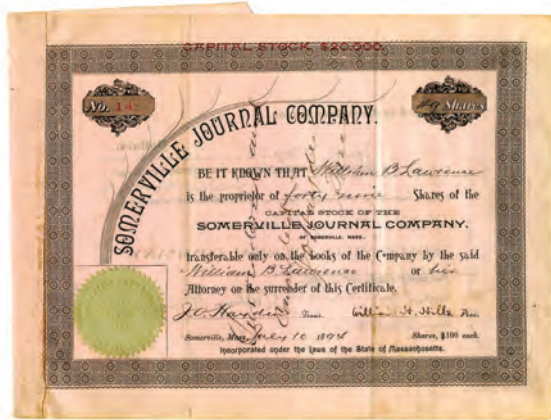 CAPITAL STOCK $20,000.
No. 14
49 Shares
SOMERVILLE JOURNAL COMPANY.
BE IT KNOWN THAT William B Lawrence
is the proprietor of forty nine Shares of the
CAPITAL STOCK OF THE
SOMERVILLE JOURNAL COMPANY,
OF SOMERVILLE, MASS.
transferable only on the books of the Company by the said
William B Lawrence or his
Attorney on the surrender of this Certificate.
J. O. Hayden Treas. William H. Hills Pres.
Somerville, Mass, July 10 1894 Shares, $100 each.
Incorporated under the Laws of the State of Massachusetts.